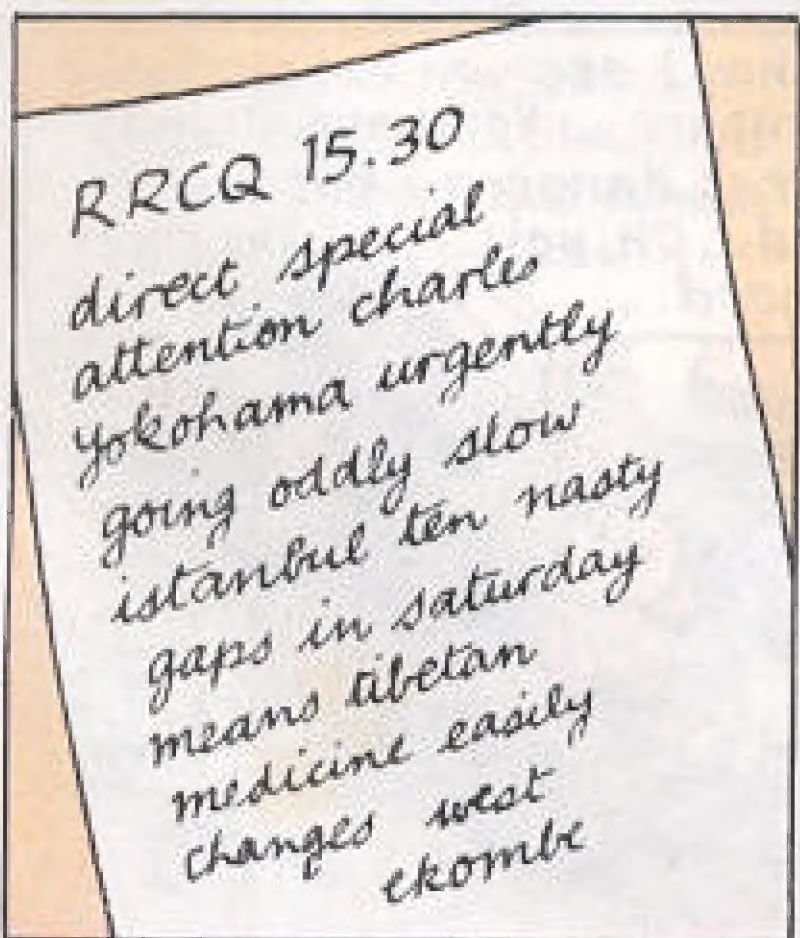 RRCQ 15.30
direct special
attention charles
Yokohama urgently
going oddly slow
istanbul ten nasty
gaps in saturday
means tibetan
medicine easily
changes west
ekombe